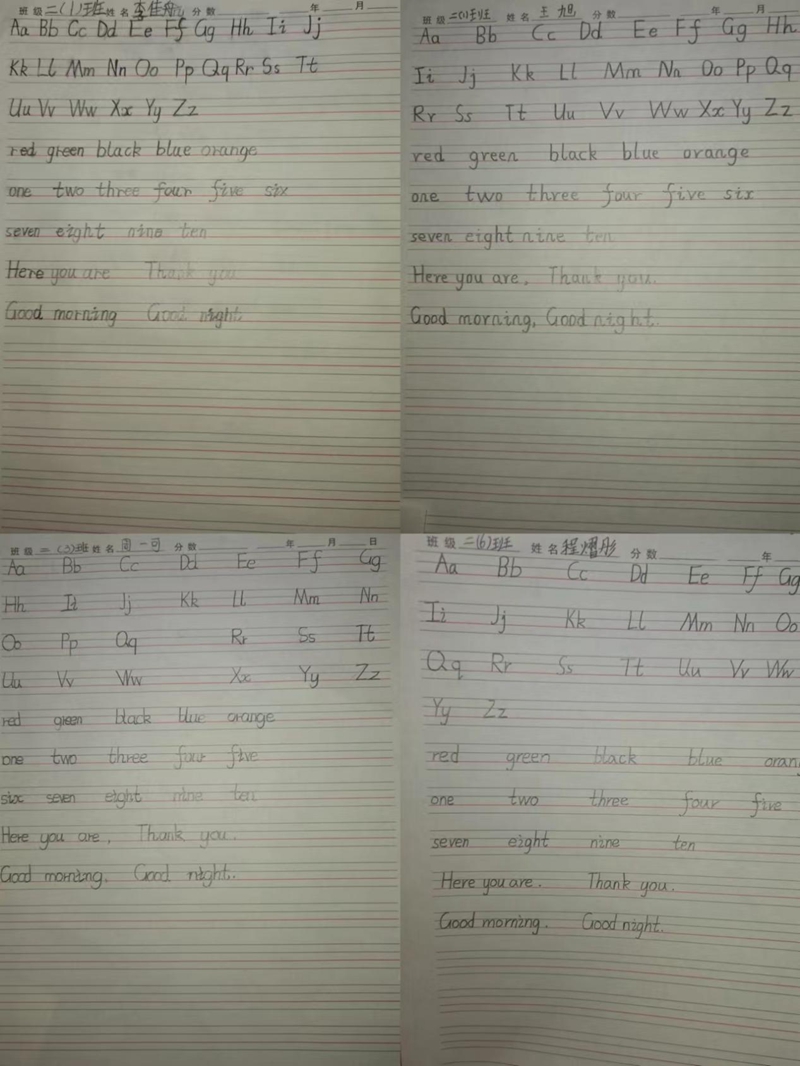 班级 二(1)班 姓名 李佳舟 分数 年 月
Aa Bb Cc Dd Ee Ff Gg Hh Ii Jj
Kk Ll Mm Nn Oo Pp Qq Rr Ss Tt
Uu Vv Ww Xx Yy Zz
red green black blue orange
one two three four five six
seven eight nine ten
Here you are Thank you
Good morning Good night.
班级 二(1)班 姓名 王旭 分数 年 月
Aa Bb Cc Dd Ee Ff Gg Hh
Ii Jj Kk Ll Mm Nn Oo Pp Qq
Rr Ss Tt Uu Vv Ww Xx Yy Zz
red green black blue orange
one two three four five six
seven eight nine ten
Here you are. Thank you.
Good morning, Good night.
班级 二(3)班 姓名 周一可 分数 年 月 日
Aa Bb Cc Dd Ee Ff Gg
Hh Ii Jj Kk Ll Mm Nn
Oo Pp Qq Rr Ss Tt
Uu Vv Ww Xx Yy Zz
red green black blue orange
one two three four five
six seven eight nine ten
Here you are. Thank you.
Good morning. Good night.
班级 二(6)班 姓名 程熠彤 分数 年
Aa Bb Cc Dd Ee Ff Gg
Ii Jj Kk Ll Mm Nn Oo
Qq Rr Ss Tt Uu Vv Ww
Yy Zz
red green black blue oran
one two three four five
seven eight nine ten
Here you are. Thank you.
Good morning. Good night.